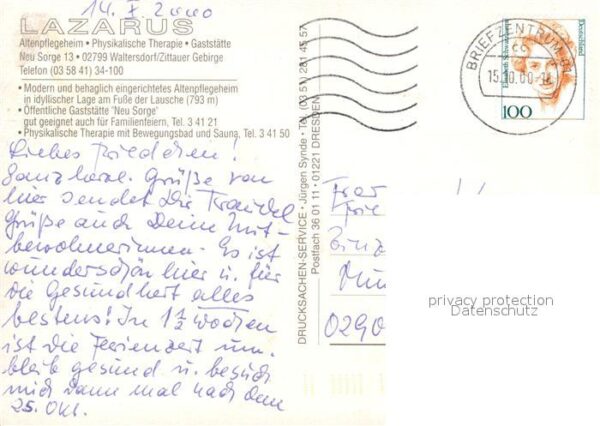 14. X 2000
LAZARUS
Altenpflegeheim • Physikalische Therapie • Gaststätte
Neu Sorge 13 • 02799 Waltersdorf/Zittauer Gebirge
Telefon (03 58 41) 34-100
• Modern und behaglich eingerichtetes Altenpflegeheim
in idyllischer Lage am Fuße der Lausche (793 m)
• Öffentliche Gaststätte "Neu Sorge"
gut geeignet auch für Familienfeiern, Tel. 3 41 21
• Physikalische Therapie mit Bewegungsbad und Sauna, Tel. 3 41 50
Liebes Friedchen!
Ganz herzl. Grüße von
hier sendet Dir Traudel
Grüße auch Deine Mit-
bewohnerinnen. Es ist
wunderschön hier u. für
die Gesundheit alles
bestens! In 1½ Wochen
ist die Ferienzeit um.
bleib gesund u. besuch
mich dann mal nach dem
25. Okt.
DRUCKSACHEN-SERVICE • Jürgen Synde • Tel. (03 51) 281 45 57
Postfach 36 01 11 • 01221 DRESDEN
BRIEFZENTRUM 01
CC
15.10.00
Deutschland
100
Frau
0290
privacy protection
Datenschutz